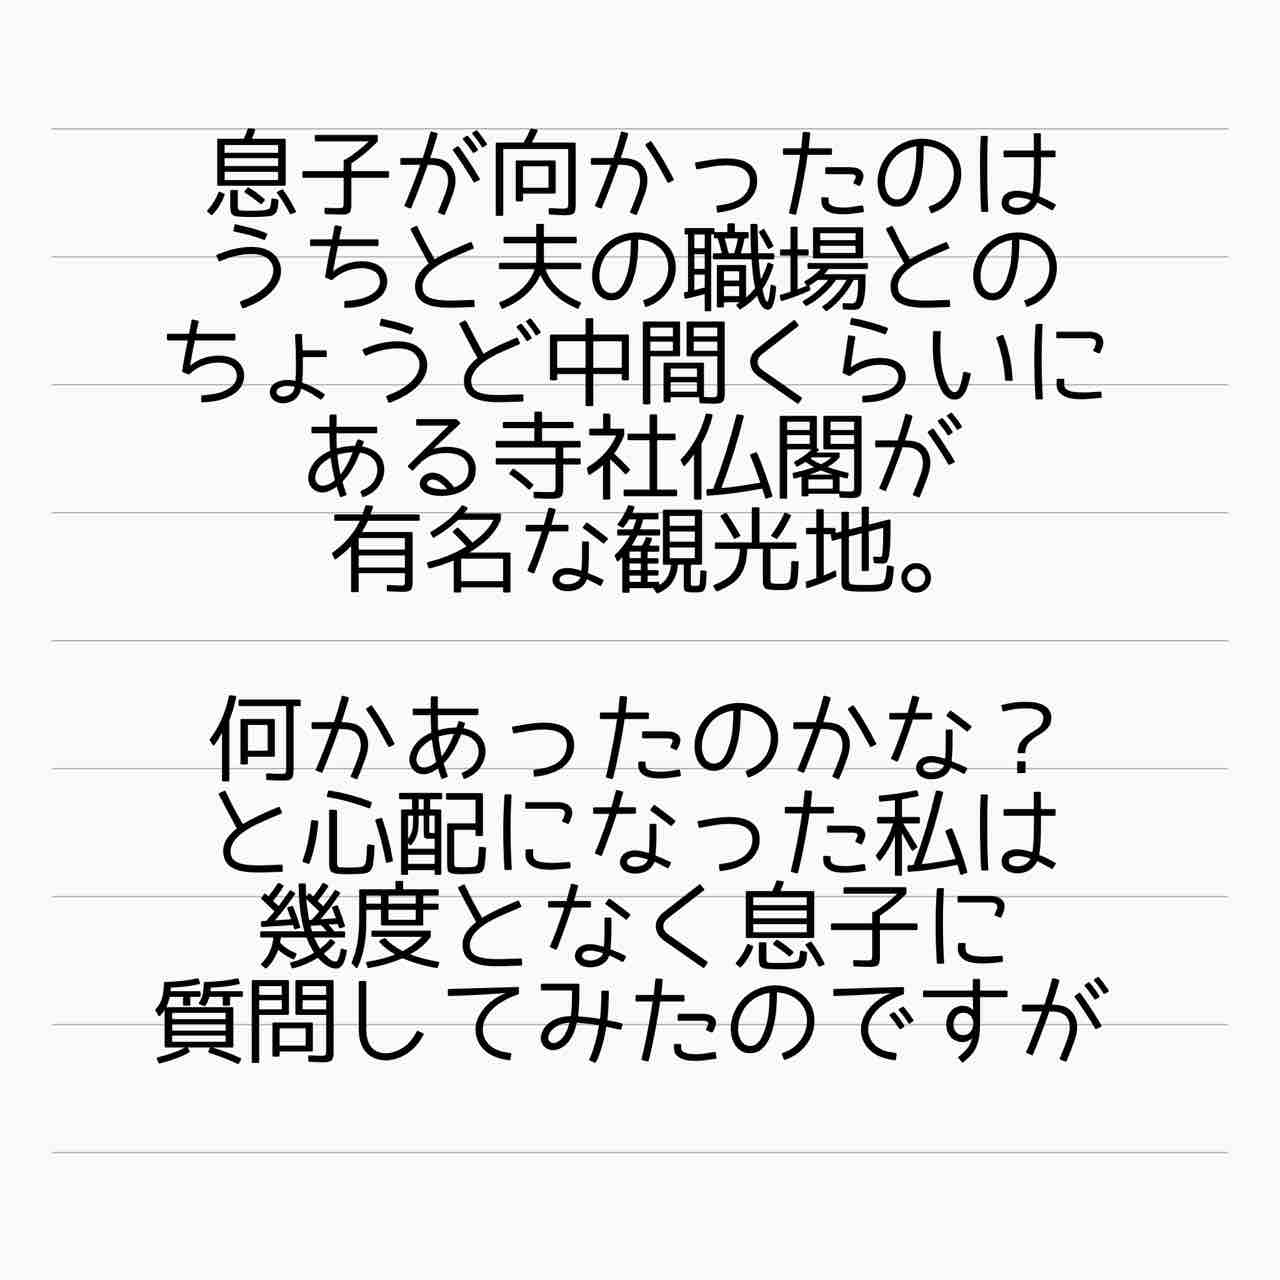 息子が向かったのは
うちと夫の職場との
ちょうど中間くらいに
ある寺社仏閣が
有名な観光地。
何かあったのかな？
と心配になった私は
幾度となく息子に
質問してみたのですが